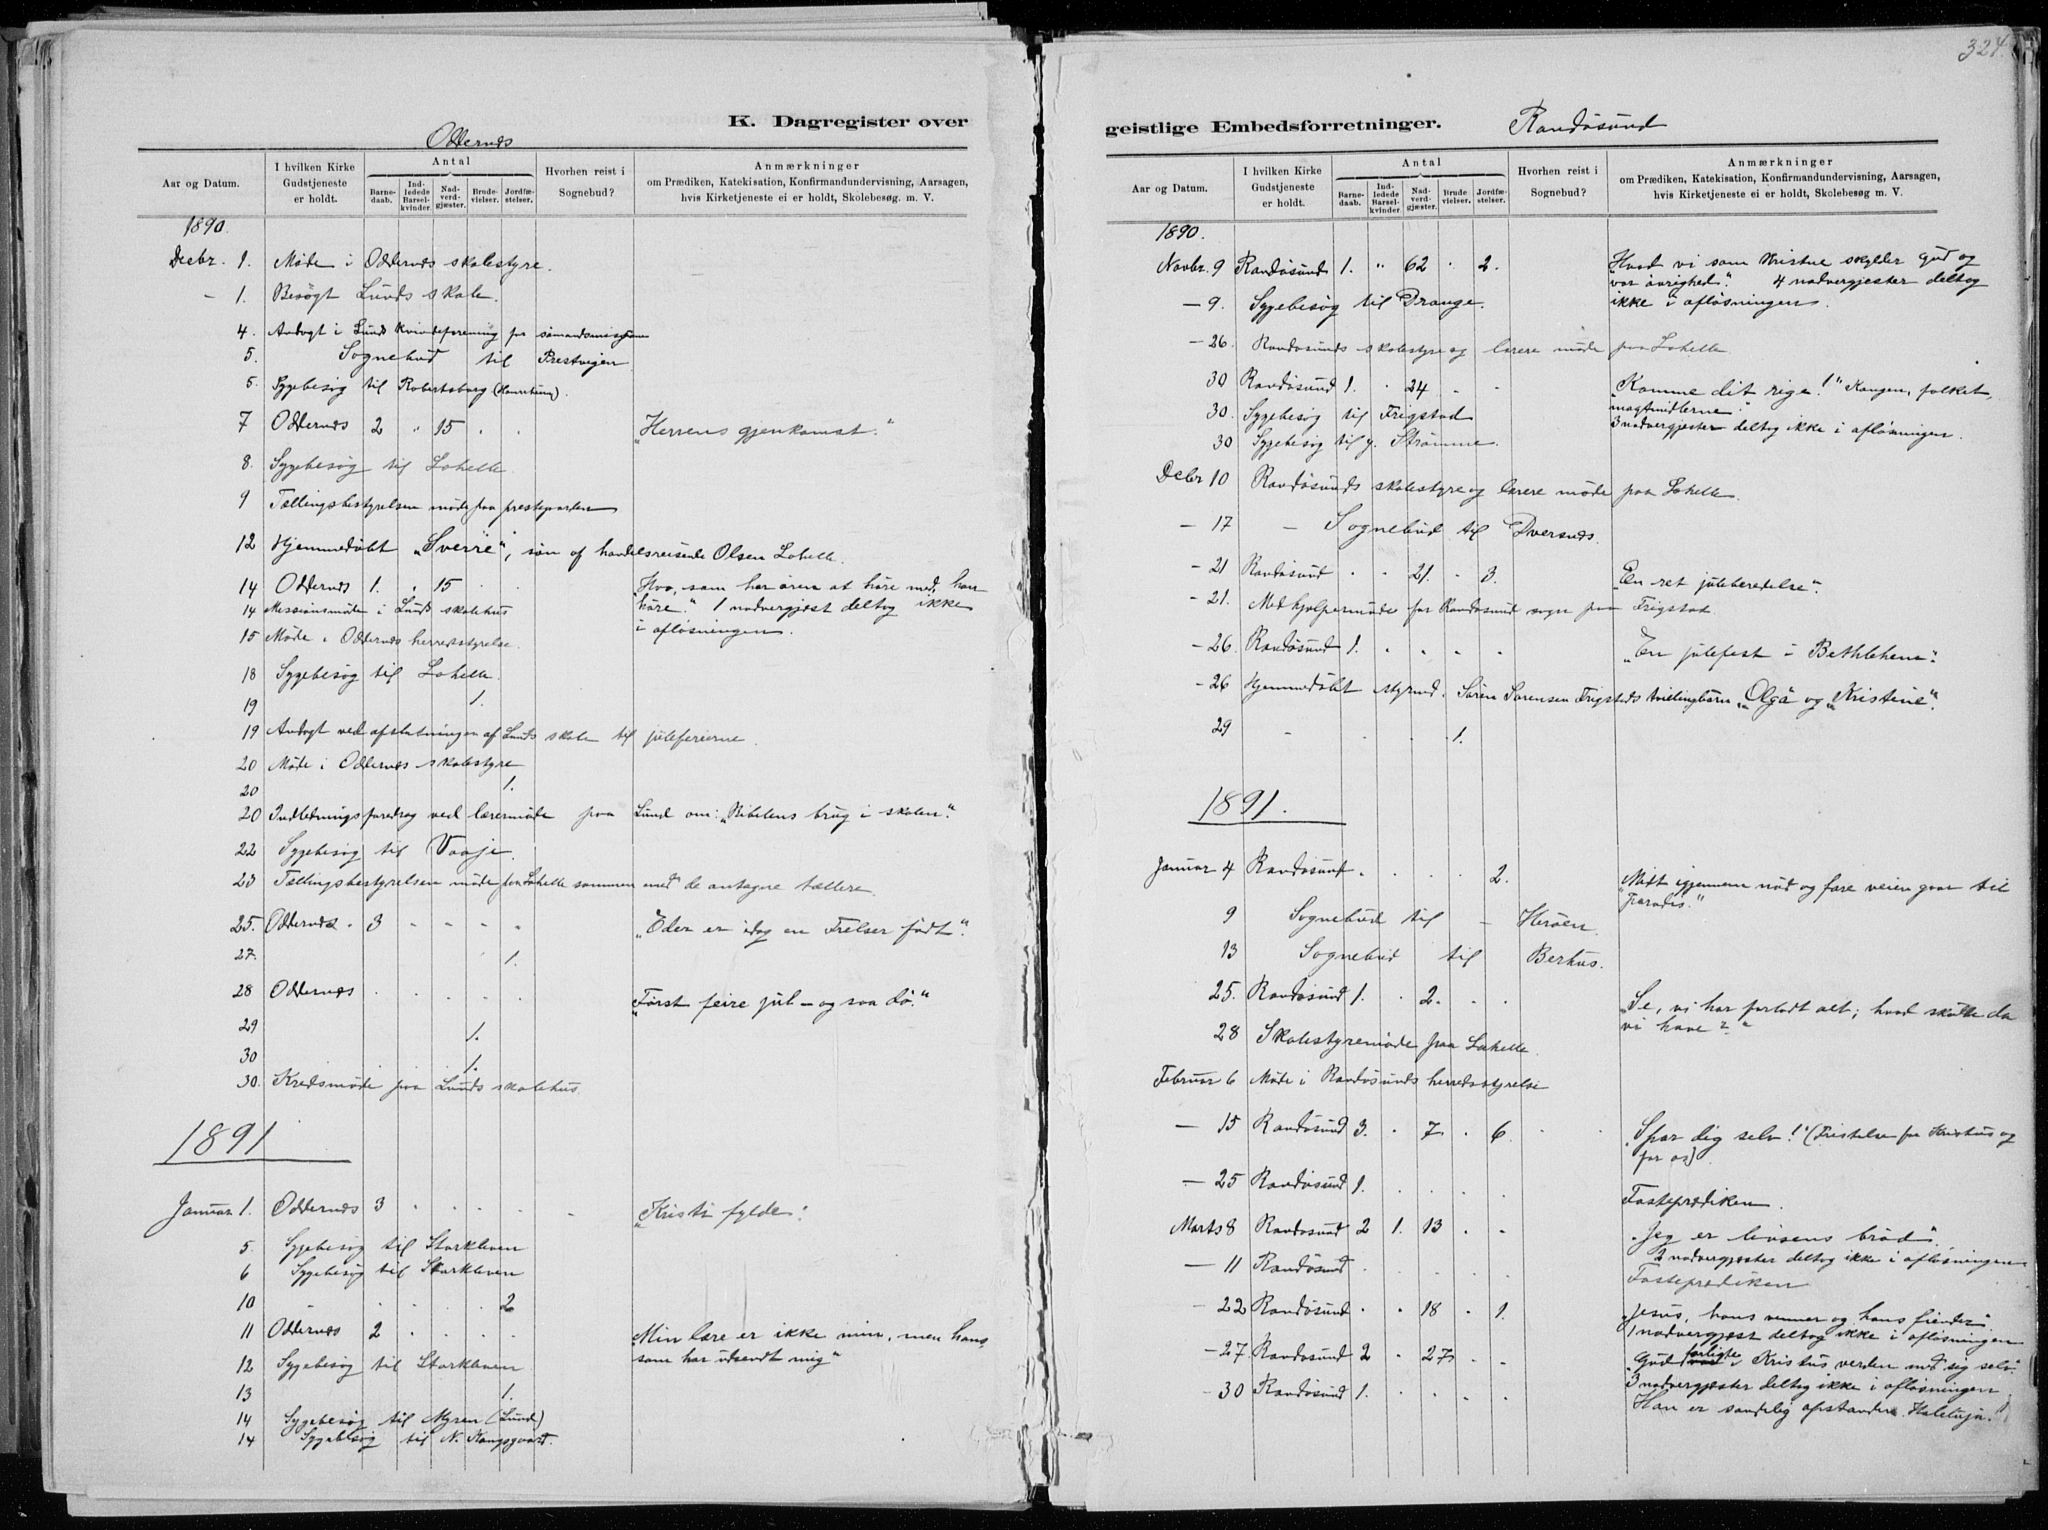 324.
K. Dagregister over
Oddernes
Aar og Datum.
I hvilken Kirke Gudstjeneste er holdt.
Antal
Barnedaab.
Indledede Barselkvinder.
Nadverdgjæster.
Brudevielser.
Jordfæstelser.
Hvorhen reist i Sognebud?
Anmærkninger
om Prædiken, Katekisation, Konfirmandundervisning, Aarsagen,
hvis Kirketjeneste ei er holdt, Skolebesøg m. V.
1890.
Decbr. 1. Møde i Oddernes skolestyre.
— 1. Besøgt Lunds skole.
4. Andagt i Lunds kvindeforening for sømandsmissionen
5. Sognebud til Prestvigen
5. Sygebesøg til Robertsborg
7 Oddernes 2 " 15 . . „Herrens gjenkomst."
8. Sygebesøg til Lahelle
9 Tællingsbestyrelsen møde paa prestegarden
12 Hjemmedøbt „Sverre", søn af handelsreisende Olsen Lahelle.
14 Oddernes 1. " 15 . „Hvo, som har øren at høre med, han
høre." 1 nadvergjest deltog ikke
i afløsningen.
14 Missionsmøde i Lunds skolehus
15 Møde i Oddernes herredsstyrelse.
18 Sygebesøg til Lahelle
19 1.
19 Andagt ved afslutningen af Lunds skole til juleferierne.
20 Møde i Oddernes skolestyre
20 1.
20 Indledningsforedrag ved lærermøde paa Lund om: „Bibelens brug i skolen".
22 Sygebesøg til Vaaje.
23 Tællingsbestyrelsen møde paa Lahelle sammen med de antagne tællere.
25. Oddernes . 3 . . . . „Eder er idag en Frelser født".
27. 1.
28 Oddernes . . . . . „Først feire jul – og saa dø."
29 1.
30 1.
30. Kredsmøde paa Lunds skolehus.
1891
Januar 1. Oddernes 3 . . . . „Kristi fylde".
5. Sygebesøg til Storkleven
6 Sygebesøg til Storkleven
10 . . . . 2
11 Oddernes 2 . . . . „Min lære er ikke min, men hans,
som har udsendt mig"
12 Sygebesøg til Storkleven
13 1.
14 Sygebesøg til Myren (Lund)
14 Sygebesøg til N. Kongsgaard.
geistlige Embedsforretninger.
Randøsund
Aar og Datum.
I hvilken Kirke Gudstjeneste er holdt.
Antal
Barnedaab.
Indledede Barselkvinder
Nadverdgjæster.
Brudevielser.
Jordfæstelser.
Hvorhen reist i Sognebud?
Anmærkninger
om Prædiken, Katekisation, Konfirmandundervisning, Aarsagen,
hvis Kirketjeneste ei er holdt, Skolebesøg m. V.
1890.
Novbr. 9 Randøsund 1. " 62 . 2. „Hvad vi som kristne skylder Gud og
vor øvrighed". 4 nadvergjester deltog
ikke i afløsningen.
— 9. Sygebesøg til Drange.
— 26. Randøsunds skolestyre og lærere møde paa Lahelle
30 Randøsund 1. " 24 . . „Komme dit rige!" Kongen, folket,
magtmidlerne".
3 nadvergjester deltog ikke i afløsningen.
30. Sygebesøg til Frigstad
30 Sygebesøg til y. Strømme.
Decbr 10 Randøsunds skolestyre og lærere møde paa Lahelle.
— 17 — Sognebud til Dversnes.
— 21 Randøsund . . 21. . 3. „En ret juleberedelse".
— 21. Medhjælpermøde for Randøsund sogn paa Frigstad.
— 26. Randøsund 1. . . . . „En julefest i Bethlehem".
— 26 Hjemmedøbt Søren Sørensen Frigstads tvillingbørn „Olga" og „Kristine".
29 . . . . 1.
1891.
Januar 4 Randøsund . . . . 2. „Midt igjennem nød og fare veien gaar til
paradis."
9 Sognebud til — Herøen.
13 Sognebud til Berhus.
25. Randøsund 1. . 2. . . „Se, vi har forladt alt; hvad skulle da
vi have?"
28 Skolestyremøde paa Lahelle
Februar 6 Møde i Randøsunds herredsstyrelse
— 15 Randøsund 3. . 7 . 6. „Spar dig selv!" (Fristelse for Kristus og
for os)
— 25 Randøsund 1. . . . . Fasteprædiken.
Marts 8 Randøsund 2 1. 13 . . „Jeg er livsens brød".
2 nadvergjester deltog ikke i afløsningen
— 11 Randøsund . . . . . Fasteprædiken
— 22 Randøsund . . 18 . 1. „Jesus, hans venner og hans fiender".
1 nadvergjest deltog ikke i afløsningen
— 27. Randøsund 2 . 27 . . „Gud forligte i Kristus verden med sig selv".
3 nadvergjester deltog ikke i afløsningen
— 30 Randøsund 1. . . . . Han er sandelig opstanden. Haleluja!"